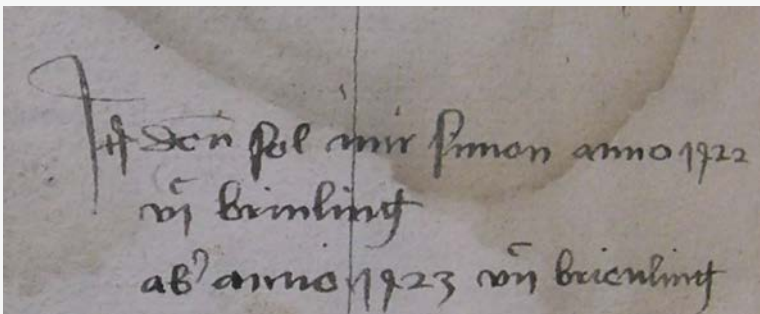 It den sol mir simon anno 1422
vj brinling
ab anno 1423 vij brienling